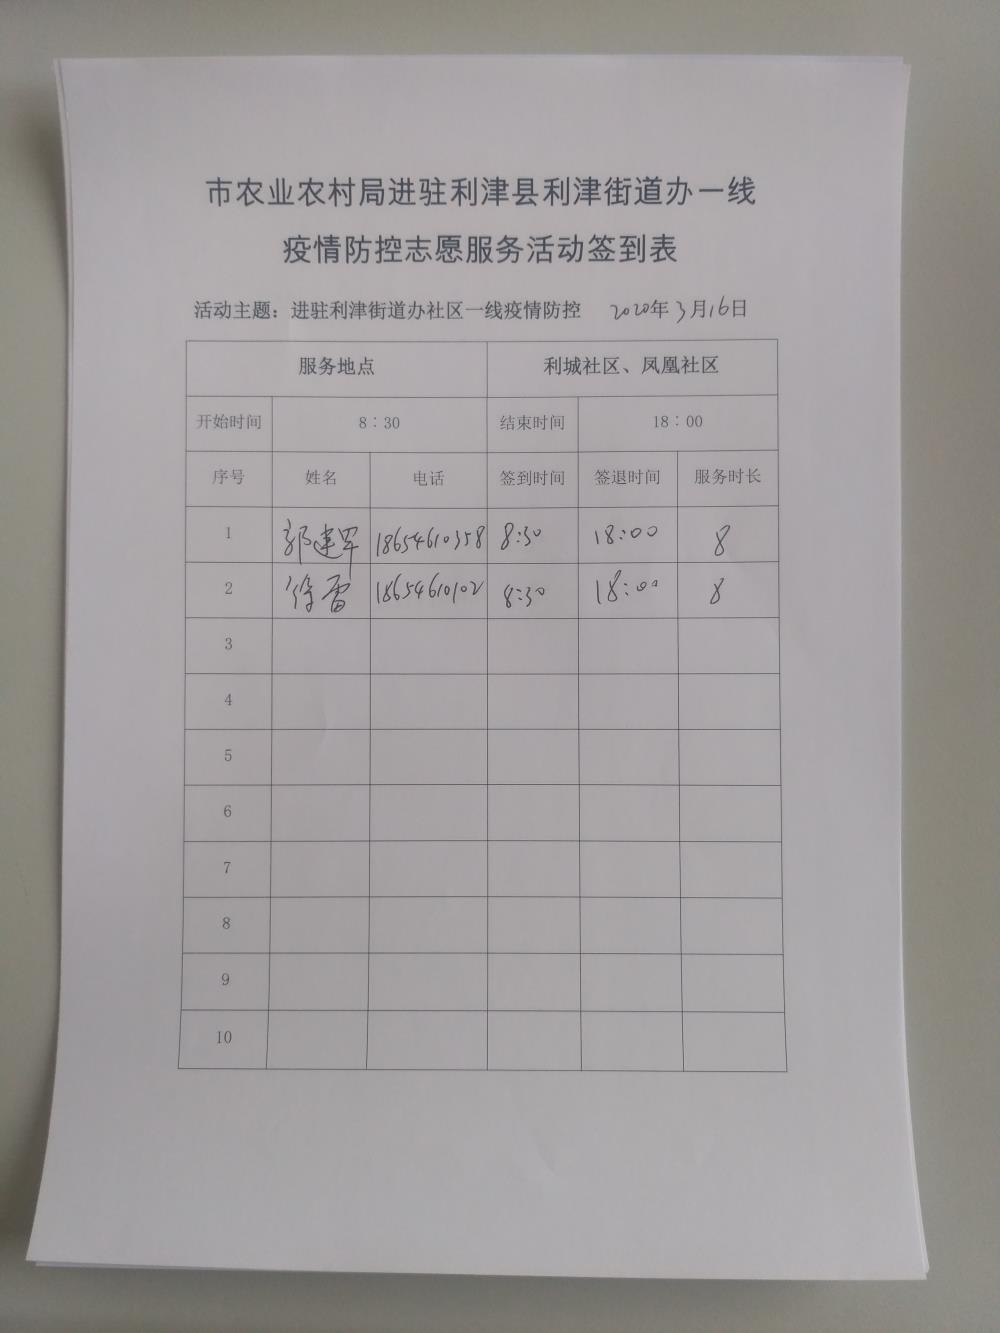 市农业农村局进驻利津县利津街道办一线
疫情防控志愿服务活动签到表
活动主题：进驻利津街道办社区一线疫情防控 2020年3月16日
服务地点 利城社区、凤凰社区
开始时间 8：30 结束时间 18：00
序号 姓名 电话 签到时间 签退时间 服务时长
1 郭建军 18654610358 8:30 18:00 8
2 徐雷 18654610102 8:30 18:00 8
3
4
5
6
7
8
9
10